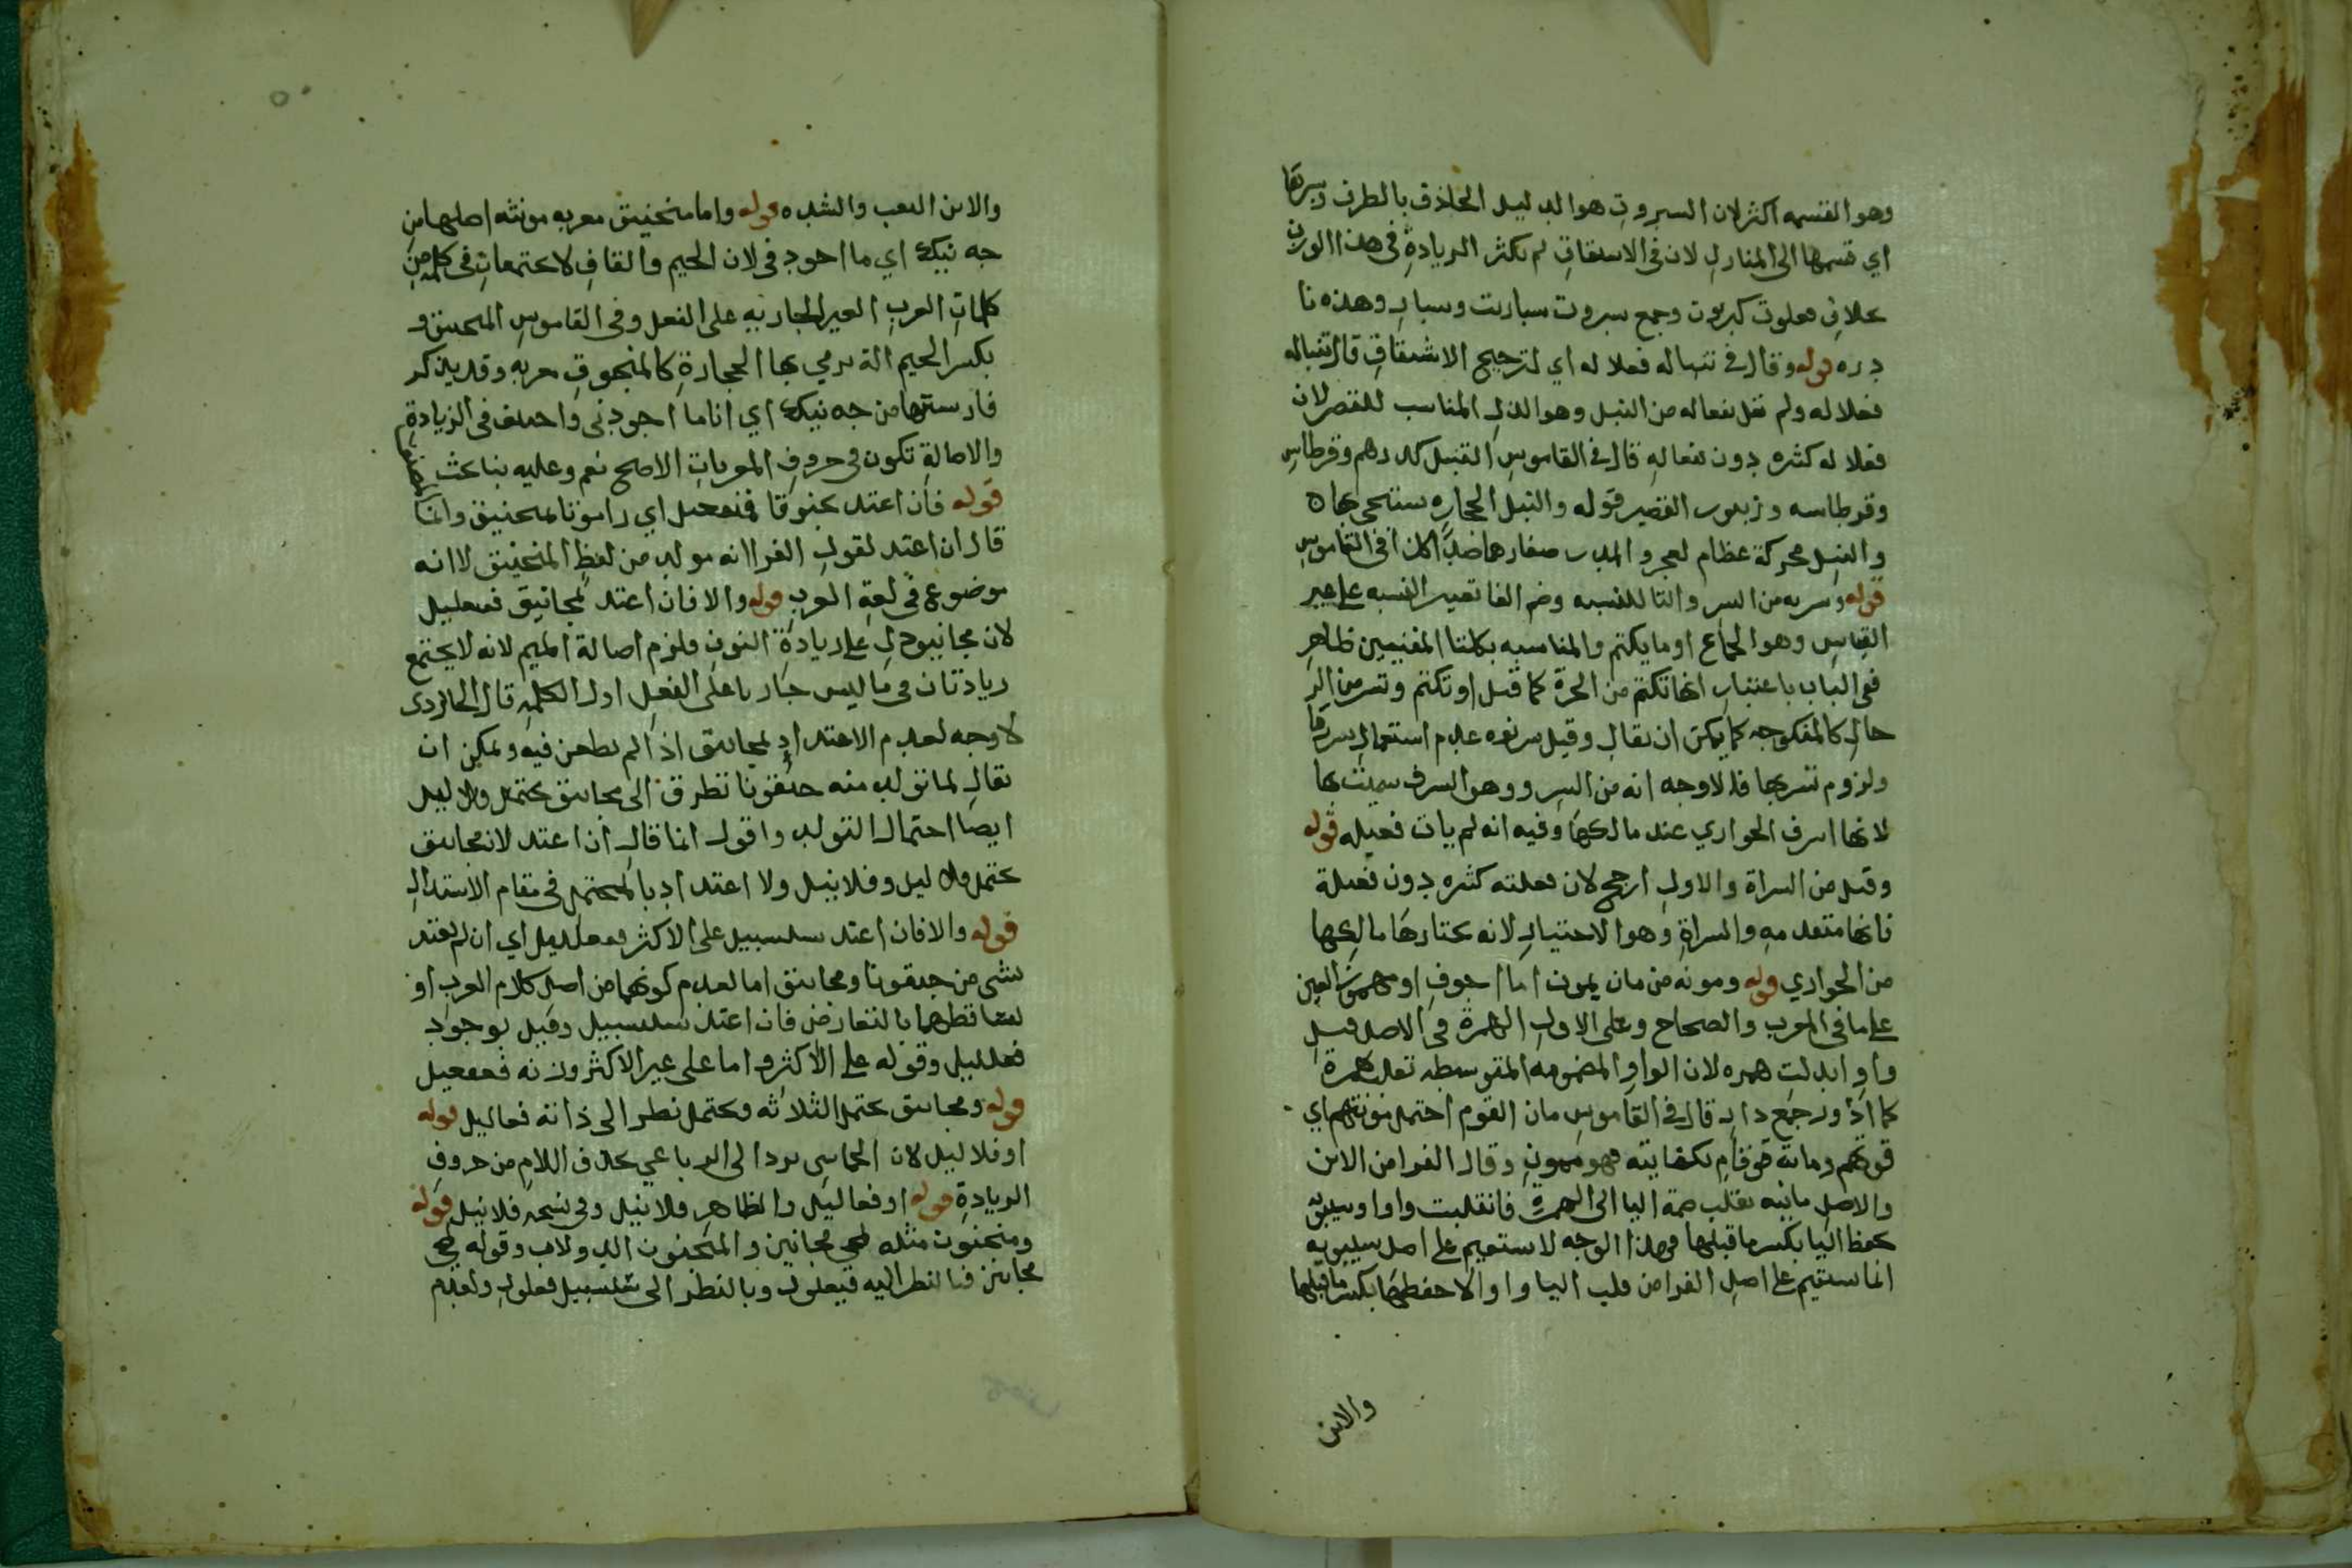 وهو القسمه اكثر لان السبروت هو الدليل الحاذق بالطرف وسبرتها
اي قسمها الى المنازل لان في الاشتقاق لم تكثر الزيادة في هذا الوزن
بخلاف فعلوت كبروت وجمع سبروت سباريت وسبار وهذه نا
دره قوله وقال في تنباله فعلاله اي لترجيح الاشتقاق قال تنباله
فعلاله ولم نقل تفعاله من النبل وهو الذل المناسب للقصر لان
فعلاله كثره دون تفعاله قال في القاموس التنبل كدرهم وقرطاس
وقرطاسه وزنبور القصير قوله والنبل الحجاره يستنجى بها ه
والنبل محركة عظام الحجر والمدر صغارهما ضد كذا في القاموس
قوله وسريه من السر والتا للنسبه وضم الفا تغيير النسبه على غير
القياس وهو الجماع او ما يكتم والمناسبه بكلتا المعنيين ظاهر
ففي الباب باعتبار انها تكتم من الحرة كما قيل او تكتم وتسر من الر
حال كالمنكوحه كما يمكن ان يقال وقيل سريه عدم استعمال سرتها
ولزوم تسربها فلا وجه انه من السر وهو السرف سميت بها
لانها اسرف الجواري عند مالكها وفيه انه لم يات فعيله قوله
وقيل من السراة والاول ارجح لان فعلية كثره دون فعيلة
فانها متعدمه والسراة وهو الاختيار لانه يختارها مالكها
من الجواري قوله ومونه من مان يمون اما اجوف او مهموز العين
على ما في المعرب والصحاح وعلى الاول الهمزة في الاصل قيل
واو ابدلت همزه لان الواو المضمومه المتوسطه تقلب همزة
كما ادور جمع دار قال في القاموس مان القوم احتمل مونتهم اي
قوتهم ومانه قوقام بكفايته فهو ممون وقال الفرا من الاين
والاصل ماينه نقلت ضمة اليا الى الهمزة فانقلبت واوا وسيبويه
يحفظ اليا بكسر ما قبلها فهذا الوجه لا يستقيم على اصل سيبويه
انما يستقيم على اصل الفرا من قلب اليا واوا لا حفظها بكسر ما قبلها
والاين
والاين التعب والشده قوله واما منجنيق معربه مونثه اصلها من
جه نيك اي ما اجودني لان الجيم والقاف لا يجتمعان في كلمه من
كلمات العرب الغير الجاريه على الفعل وفي القاموس المنجنيق و
بكسر الجيم الة يرمي بها الحجارة كالمنجوق معربه وقد يذكر
فارسيتها من جه نيك اي انا ما اجودني واختلف في الزيادة
والاصالة تكون في حروف المعربات الاصح نعم وعليه بنا بحث المصنف
قوله فان اعتد بجنقونا فمنفعيل اي رامونا بمنجنيق وانما
قال ان اعتد لقول الفرا انه مولد من لفظ المنجنيق لا انه
موضوع في لغة العرب قوله والا فان اعتد بمجانيق ففنعليل
لان مجانيق دل على زيادة النون فلزم اصالة الميم لانه لا يجتمع
زيادتان في ما ليس جاريا على الفعل اول الكلمه قال الجاربردى
لا وجه لعدم الاعتداد بمجانيق اذا لم يطعن فيه ويمكن ان
يقال لما تولد منه جنقونا تطرق الى مجانيق يحتمل ولا ليل
ايضا احتمال التولد واقول انما قال ان اعتد لان مجانيق
يحتمل فلا ليل وفلانيل ولا اعتداد بالمحتمل في مقام الاستدلال
قوله والا فان اعتد بسلسبيل على الاكثر ففعلليل اي ان لم يعتد
بشي من جنقونا ومجانيق اما لعدم كونهما من اصل كلام العرب او
لتساقطهما بالتعارض فان اعتد بسلسبيل وقيل بوجود
فعلليل وقوله على الاكثر واما على غير الاكثر وزنه ففعفيل
قوله ومجانيق يحتمل الثلاثه ويحتمل نظرا الى ذاته فعاليل قوله
او فلاليل لان الخماسي يرد الى الرباعي بحذف اللام من حروف
الزيادة قوله او فعاليل والظاهر فلانيل وفي نسخه فلانيل قوله
ومنجنون مثله لمجي مجانين والمنجنون الدولاب وقوله لمجي
مجانين فبالنظر اليه فنعلول وبالنظر الى سلسبيل فعلول ولعدم